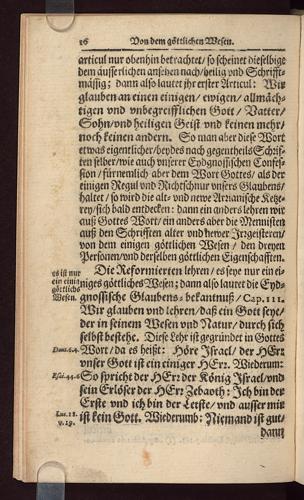 16 Von dem göttlichen Wesen.
articul nur obenhin betrachtet/ so scheinet dieselbige
dem äusserlichen ansehen nach/ heilig vnd Schrifft-
mässig; dann also lautet jhr erster Articul: Wir
glauben an einen einigen/ ewigen/ allmäch-
tigen vnd vnbegreifflichen Gott/ Vatter/
Sohn/ vnd heiligen Geist vnd keinen mehr/
noch keinen andern. So man aber diese Wort
etwas eigentlicher/ beydes nach gegentheils Schrif-
ten selber/ wie auch vnserer Eydgnossischen Confes-
sion/ fürnemlich aber dem Wort Gottes/ als der
einigen Regul vnd Richtschnur vnsers Glaubens/
haltet/ so wird die alt- vnd newe Arrianische Ketze-
rey/ sich bald entdecken: dann ein anders lehren wir
auß Gottes Wort/ ein anders aber die Mennisten
auß den Schrifften alter vnd newer Irrgeisteren/
von dem einigen göttlichen Wesen/ den dreyen
Personen/ vnd derselben göttlichen Eigenschafften.
Die Reformierten lehren/ es seye nur ein ei-
niges göttliches Wesen; dann also lautet die Eyd-
gnossische Glaubens-bekantnuß/ Cap. III.
Wir glauben vnd lehren/ daß ein Gott seye/
der in seinem Wesen vnd Natur/ durch sich
selbst bestehe. Diese Lehr ist gegründet in Gottes
Wort/ da es heißt: Höre Israel/ der HErr
vnser Gott ist ein einiger HErr. Wiederum:
So spricht der HErr der König Israel/ vnd
sein Erlöser der HErr Zebaoth: Ich bin der
Erste vnd ich bin der Letste/ vnd ausser mir
ist kein Gott. Wiederumb: Niemand ist gut/
dann
es ist nur
ein einig
göttliches
Wesen.
Deut. 6.4.
Esai. 44.6
Luc. 18.
v. 19.